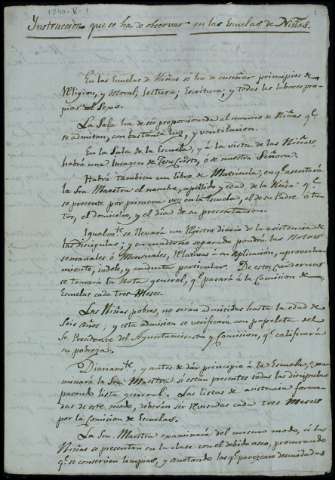 Instruccion que se ha de observar en las Escuelas de Niñas.
En las Escuelas de Niñas se ha de enseñar principios de
Religion, y Moral, Lectura, Escritura, y todas las labores pro-
pias del Sexo.
La Sala ha de ser proporcionada al numero de Niñas qe.
se admitan, con bastante luz, y ventilacion.
En la Sala de la Escuela, y à la vista de las Niñas,
habrá una Imagen de Jesu-Cristo, ó de nuestra Señora.
Habrá tambien un libro de Matricula, en qe. asentará
la Sra. Maestra el nombre, apellido y edad de la Niña qe.
se presente por primera vez en la Escuela, el de su Padre ó tu-
tor, el domicilio, y el dia de su presentacion.
Igualmte. se llevará un Registro diario de la asistencia de
las discipulas; y en cuaderno separado pondrá las Notas
semanales ó Mensuales, relativas à su aplicacion, aprovecha-
miento, indole, y conducta particular. De estos Cuadernos
se tomará la Nota general, qe. pasará à la Comision de
Escuelas cada tres Meses.
Las Niñas pobres, no seràn admitidas hasta la edad de
Seis años; y esta admision se verificará con papeleta del
Sr. Presidente del Ayuntamiento, ó su Comision, qe. calificará
su pobreza.
Diariamte., y antes de dar principio à la Escuela, exa-
minará la Sra. Maestra si están presentes todas las discipulas
pasando lista general. Las listas de asistencia forma-
das de este modo, deberán ser revisadas cada tres Meses
por la Comision de Escuelas.
La Sra. Maestra examinará del mismo modo, si las
Niñas se presentan en la clase con el debido aseo, procurando
qe. se conserven limpias, y anotando las qe. parezcan descuidadas